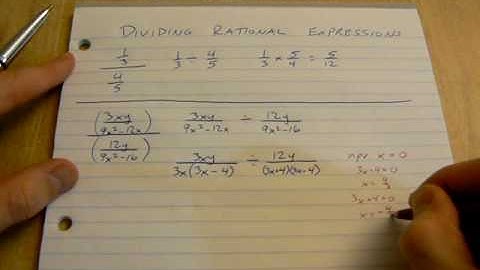 DIVIDING RATIONAL EXPRESSIONS
(1/3)/(4/5) 1/3 ÷ 4/5 1/3 × 5/4 = 5/12
(3xy/(9x²-12x))/(12y/(9x²-16)) 3xy/(9x²-12x) ÷ 12y/(9x²-16)
3xy/(3x(3x-4)) ÷ 12y/((3x+4)(3x-4))
npv x=0
3x-4=0
x=4/3
3x+4=0
x=-4